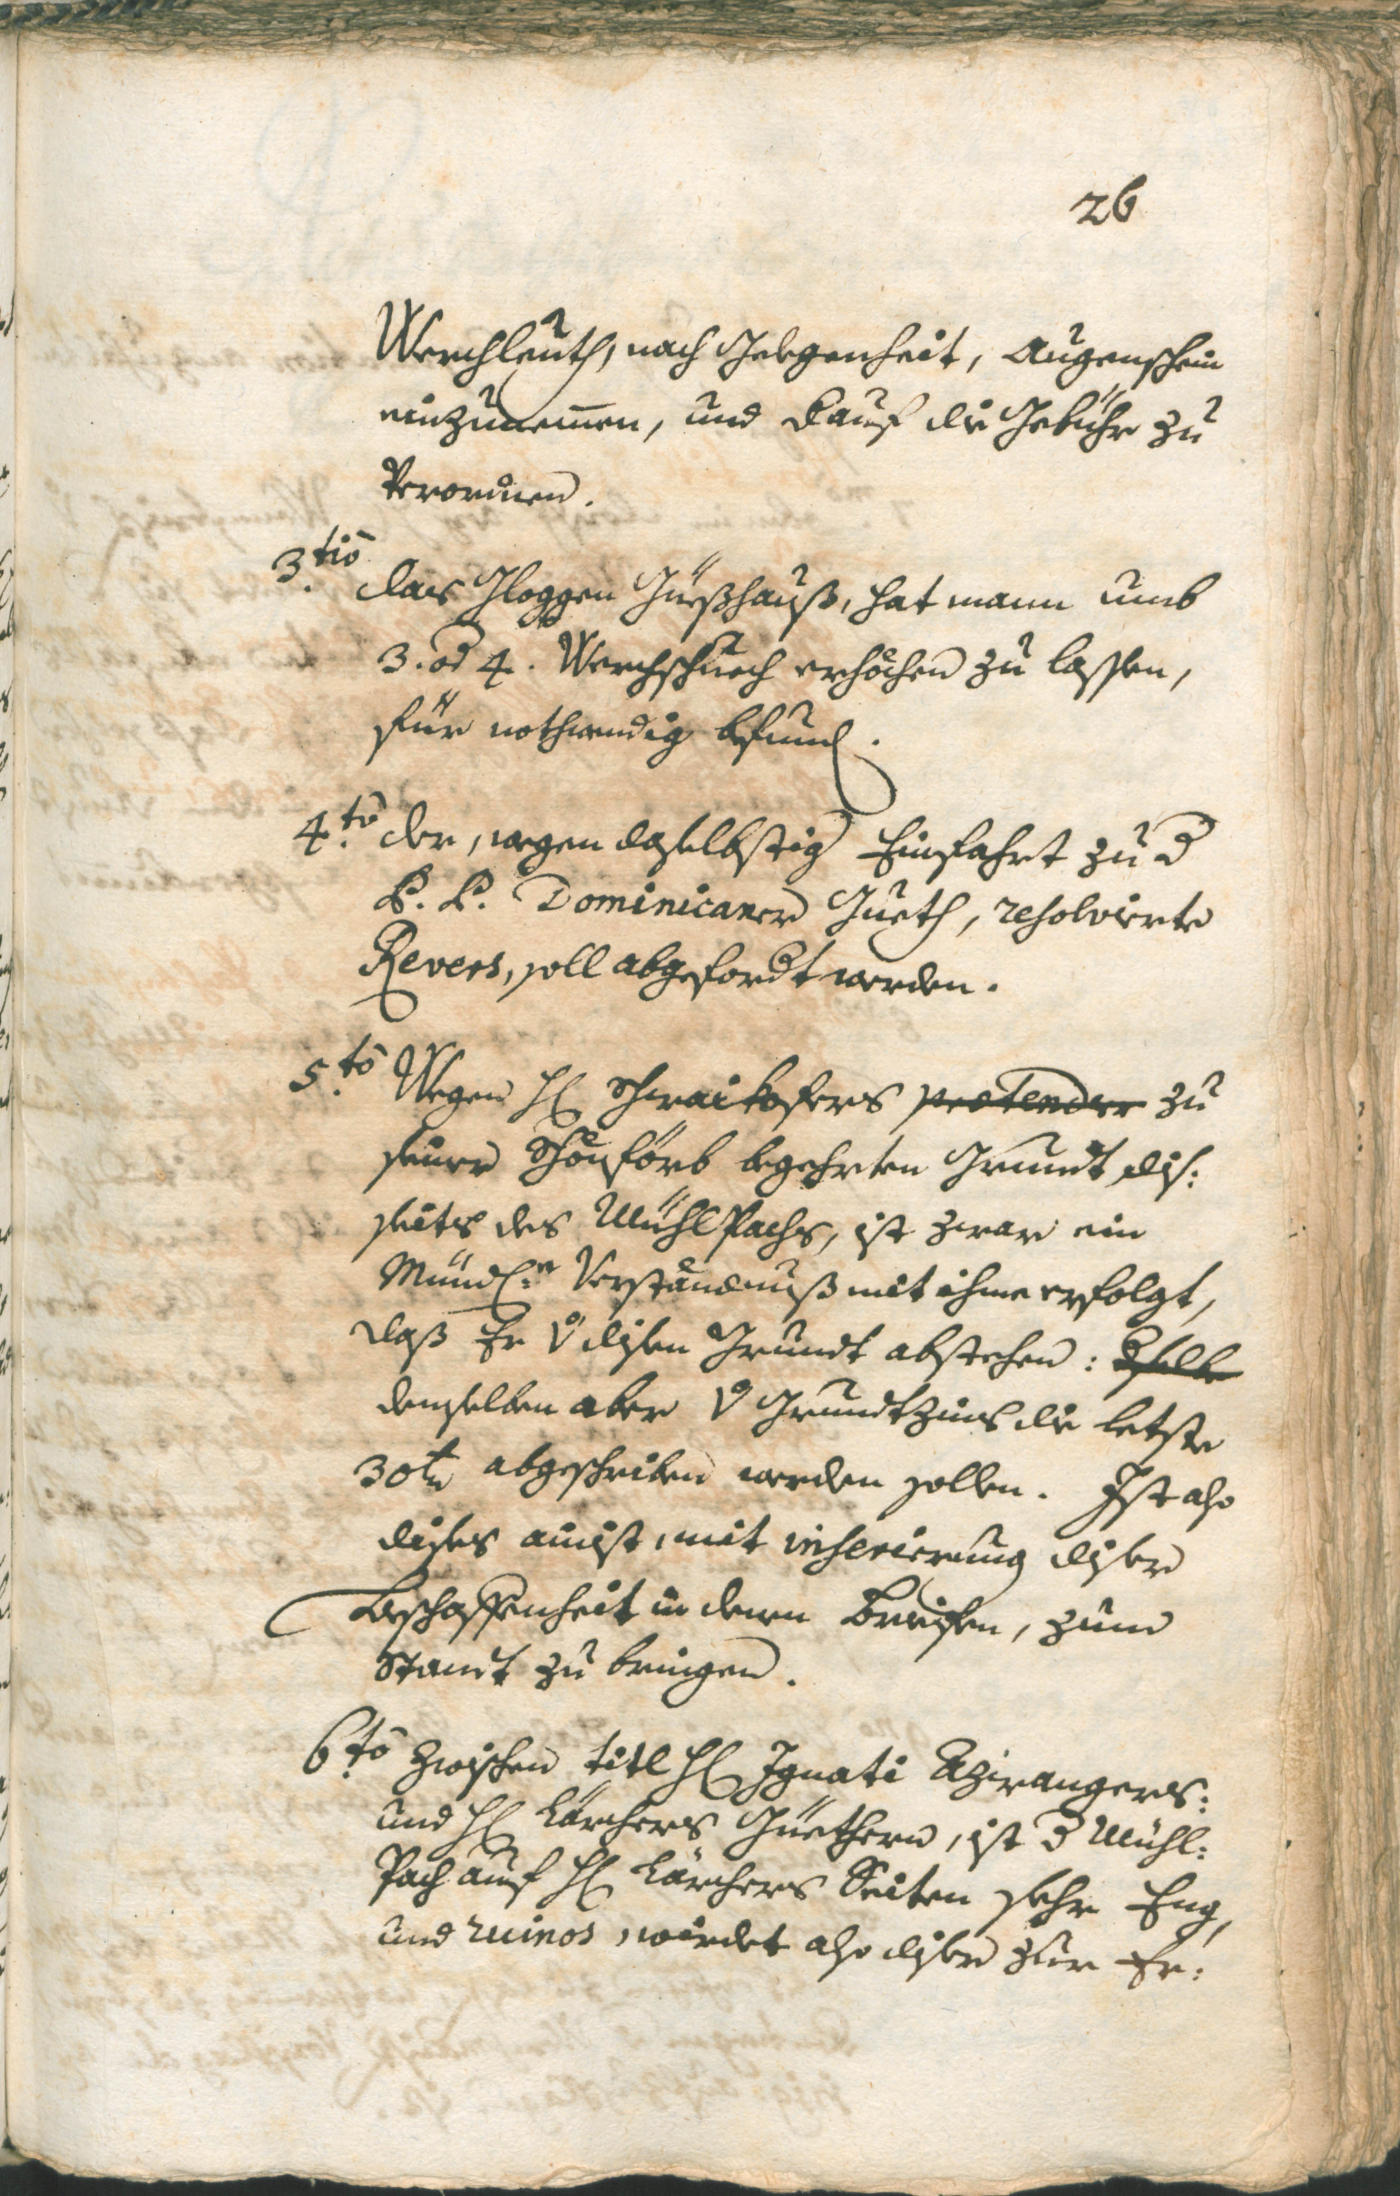 26
Werchleuth, nach Gelegenheit, Augenschein
einzunemen, und darauf die Gebühr zu
Verordnen.
3.tio das Gloggen Güeßhauß, hat mann umb
3. od 4. Werchschuech erhöchen zu lassen,
für nothwendig befundn.
4.to der, wegen daselbstig Einfahrt zu d
P. P. Dominicaner Gueth, resolvierte
Revers, soll abgefordt werden.
5.to Wegen H. Schwaikofers pretender zu
seiner Schönförb begehrten Grundt, dis:
seits des Mühl Pachs, ist zwar ein
Mündl:n Verständnuß mit ihme erfolgt,
daß Er v disen Grundt abstehen: dselbe
demselben aber v Grundtzins die letste
30 abgeschriben werden sollen. Ist also
dises auist, mit inserierung diser
Beschaffenheit in denen Briefen, zum
Standt zu bringen.
6.to Zwischen titl H. Ignati Azwangers:
und H. Lärchers Güethern, ist d Mühl:
Pach auf H. Lärchers Seiten sehr Eng,
und ruinos, wirdet also diser zur Er: